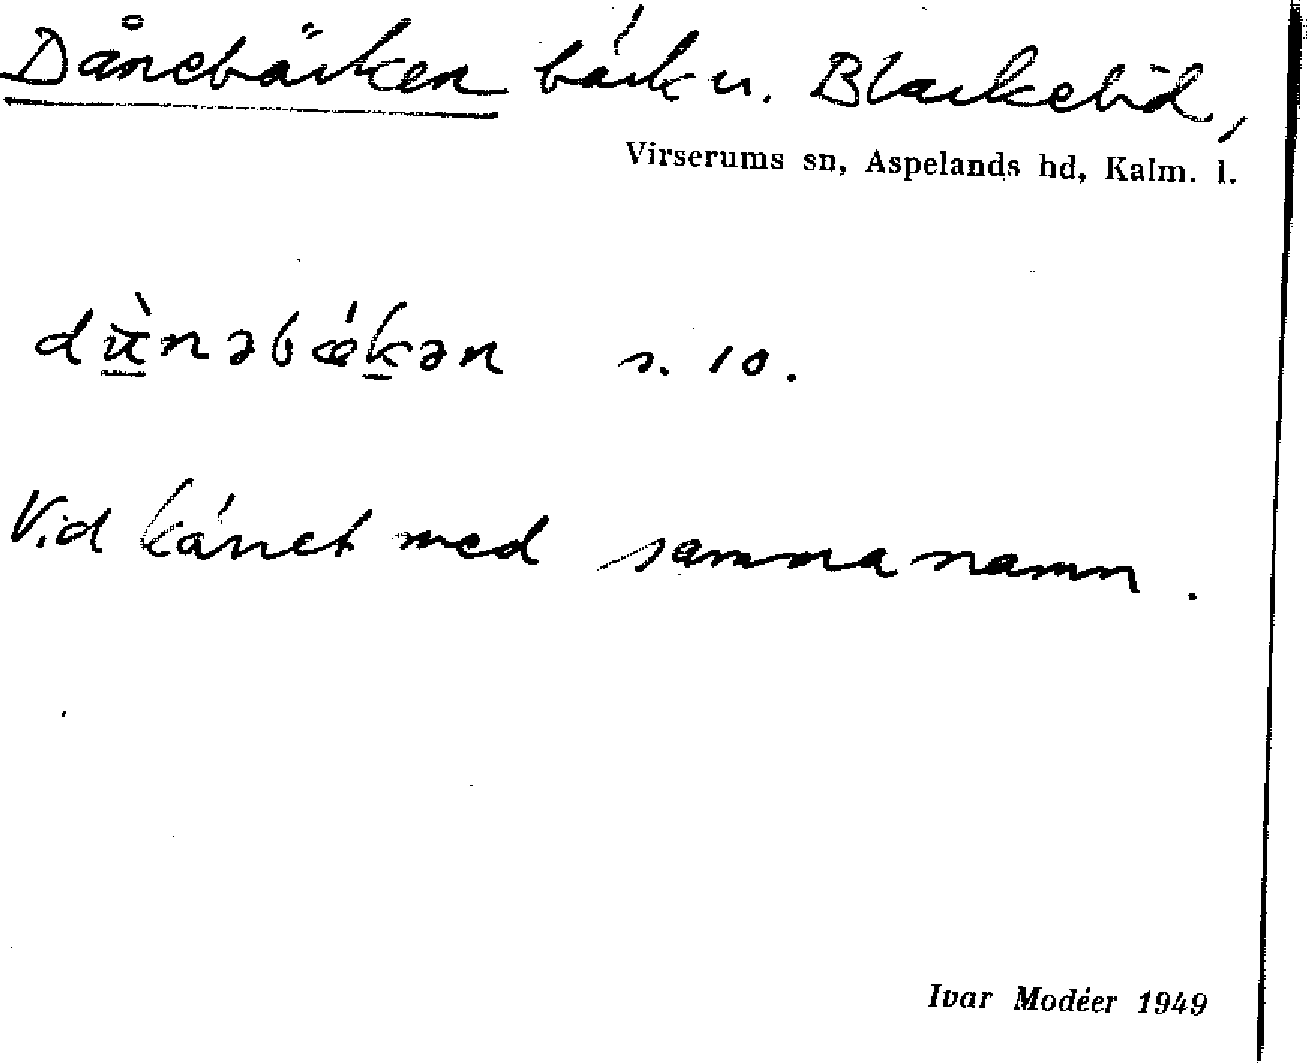 Dånebäcken bäck u. Blackebid,
Virserums sn, Aspelands hd, Kalm. l.
dù̱nəbǽḵən s. 10.
Vid kärret med samma namn.
Ivar Modéer 1949